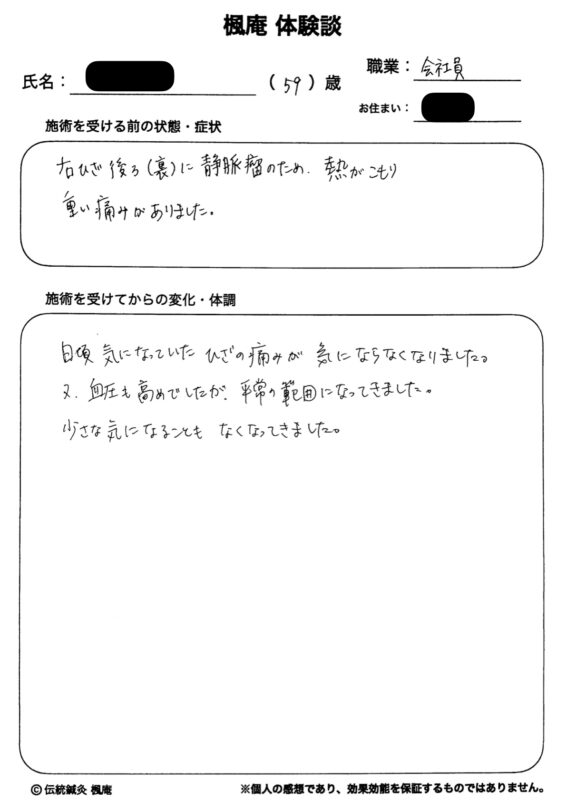 楓庵 体験談
氏名： （ 59 ）歳
職業： 会社員
お住まい：
施術を受ける前の状態・症状
右ひざ後ろ（裏）に静脈瘤のため、熱がこもり
重い痛みがありました。
施術を受けてからの変化・体調
日頃気になっていたひざの痛みが気にならなくなりました。
又、血圧も高めでしたが、平常の範囲になってきました。
少さな気になることもなくなってきました。
© 伝統鍼灸 楓庵
※個人の感想であり、効果効能を保証するものではありません。